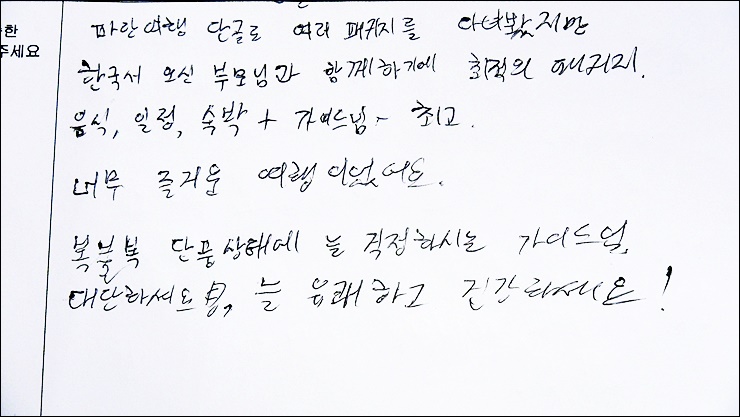 한
주세요
파란여행 단골로 여러 패키지를 다녀봤지만
한국서 오신 부모님과 함께하기에 최적의 패키지.
음식, 일정, 숙박 + 가이드님 - 최고.
너무 즐거운 여행이었어요.
복불복 단풍상태에 늘 걱정하시는 가이드님,
대단하세요, 늘 유쾌하고 건강하세요!